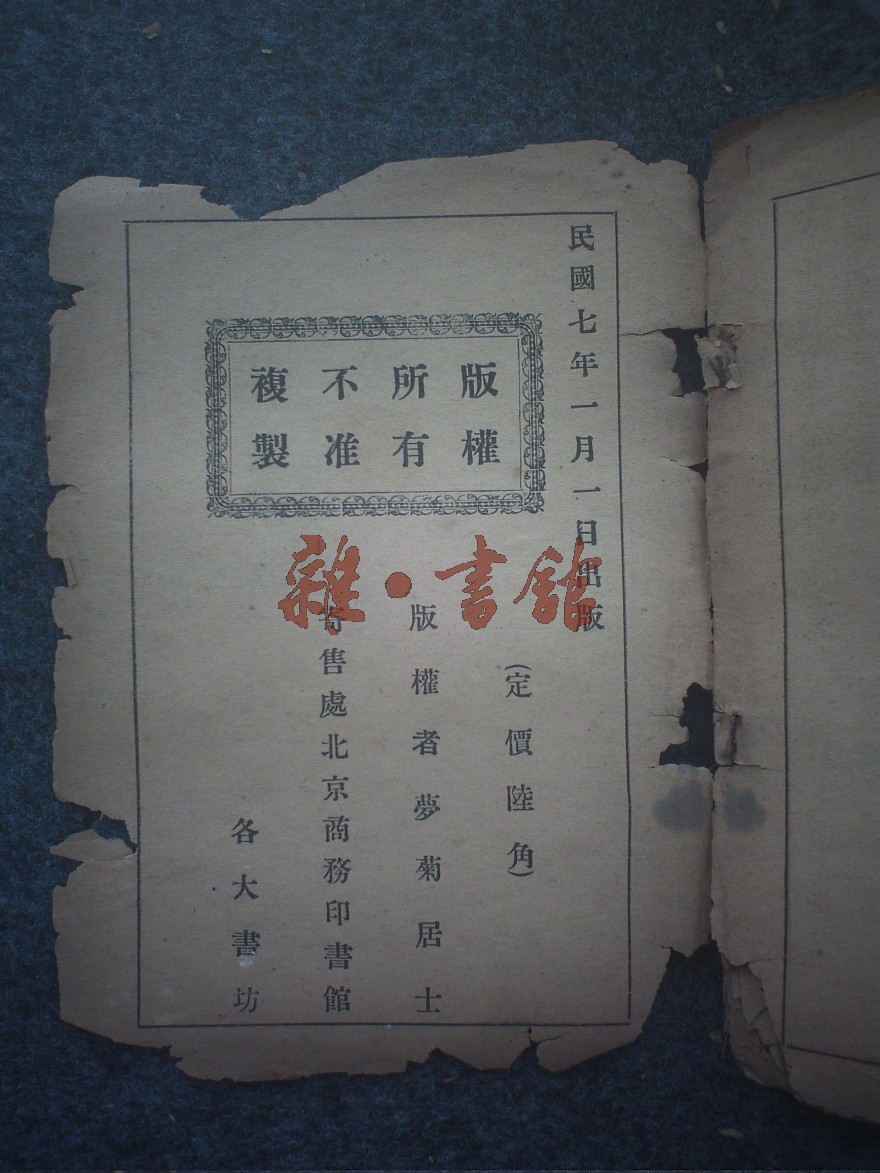 民國七年一月一日出版
版權
所有
不准
複製
(定價陸角)
版權者夢菊居士
寄售處北京商務印書館
各大書坊
雜·書館